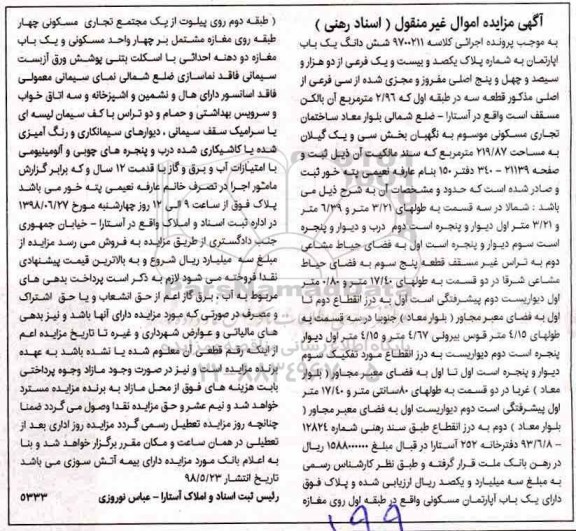 آگهی مزایده اموال غیر منقول ( اسناد رهنی )
به موجب پرونده اجرائی کلاسه ۹۷۰۰۲۱۱ شش دانگ یک باب
آپارتمان به شماره پلاک یکصد و بیست و یک فرعی از دو هزار و
سیصد و چهل و پنج اصلی مفروز و مجزی شده از سی فرعی از
اصلی مذکور قطعه سه در طبقه اول که ۲/۹۶ مترمربع آن بالکن
مسقف است واقع در آستارا – ضلع شمالی بلوار معاد ساختمان
تجاری مسکونی موسوم به نگهبان بخش سی و یک گیلان
به مساحت ۲۱۹/۸۷ مترمربع که سند مالکیت آن ذیل ثبت و
صفحه ۲۱۱۳۹ – ۳۴۰ دفتر ۱۵۰ بنام عارفه نعیمی پته خور ثبت
و صادر شده است که حدود و مشخصات آن به شرح ذیل می
باشد : شمالا در سه قسمت به طولهای ۳/۲۱ متر و ۶/۳۹ متر
و ۳/۲۱ متر اول دیوار و پنجره است دوم درب و دیوار و پنجره
است سوم دیوار و پنجره است اول به فضای حیاط مشاعی
دوم به تراس غیر مسقف قطعه پنج سوم به فضای حیاط
مشاعی شرقا در دو قسمت به طولهای ۱۷/۴۰ متر و ۰/۸۰ متر
اول دیواریست دوم پیشرفتگی است اول به درز انقطاع دوم تا
اول به فضای معبر مجاور ( بلوار معاد ) جنوبا درسه قسمت به
طولهای ۴/۱۵ متر قوس بیرونی ۴/۶۷ متر و ۴/۱۵ متر اول دیوار
پنجره است دوم دیواریست به درز انقطاع مورد تفکیک سوم
دیوار و پنجره است اول تا اول به فضای معبر مجاور ( بلوار
معاد ) غربا در دو قسمت به طولهای ۸۰سانتی متر و ۱۷/۴۰ متر
اول پیشرفتگی است دوم دیواریست اول به فضای معبر مجاور (
بلوار معاد ) دوم به درز انقطاع طبق سند رهنی شماره ۱۲۸۲۴
– ۹۳/۶/۸ دفترخانه ۲۵۲ آستارا در قبال مبلغ ۱۵۸۸۰۰۰۰۰۰ ریال
در رهن بانک ملت قرار گرفته و طبق نظر کارشناس رسمی
به مبلغ سه میلیارد و یکصد ریال ارزیابی شده و پلاک فوق
دارای یک باب آپارتمان مسکونی واقع در طبقه اول روی مغازه
( طبقه دوم روی پیلوت از یک مجتمع تجاری مسکونی چهار
طبقه روی مغازه مشتمل بر چهار واحد مسکونی و یک باب
مغازه دو دهنه احداثی با اسکلت بتنی پوشش ورق آزبست
سیمانی فاقد نماسازی ضلع شمالی نمای سیمانی معمولی
فاقد آسانسور دارای هال و نشمین و آشپزخانه و سه اتاق خواب
و سرویس بهداشتی و حمام و دو تراس با کف سیمان لیسه ای
یا سرامیک سقف سیمانی ، دیوارهای سیمانکاری و رنگ آمیزی
شده یا کاشیکاری شده درب و پنجره های چوبی و آلومینیومی
با امتیازات آب و برق و گاز با قدمت ۱۲ سال و که برابر گزارش
مامور اجرا در تصرف خانم عارفه نعیمی پته خور می باشد
پلاک فوق از ساعت ۹ الی ۱۲ روز چهارشنبه مورخ ۱۳۹۸/۰۶/۲۷
در اداره ثبت اسناد و املاک واقع در آستارا – خیابان جمهوری
جنب دادگستری از طریق مزایده به فروش می رسد مزایده از
مبلغ سه میلیارد ریال شروع و به بالاترین قیمت پیشنهادی
نقدا فروخته می شود لازم به ذکر است پرداخت بدهی های
مربوط به آب ، برق گاز اعم از حق انشعاب و یا حق اشتراک
و مصرف در صورتی که مورد مزایده دارای آنها باشد و نیز بدهی
های مالیاتی و عوارض شهرداری و غیره تا تاریخ مزایده اعم
از اینکه رقم قطعی آن معلوم شده یا نشده باشد به عهده
برنده مزایده است و نیز در صورت وجود مازاد وجوه پرداختی
بابت هزینه های فوق از محل مازاد به برنده مزایده مسترد
خواهد شد و نیم عشر و حق مزایده نقدا وصول می گردد ضمنا
چنانچه روز مزایده تعطیل رسمی گردد مزایده روز اداری بعد از
تعطیلی در همان ساعت و مکان مقرر برگزار خواهد شد و بنا
به اعلام بانک مورد مزایده دارای بیمه آتش سوزی می باشد
تاریخ انتشار ۹۸/۵/۲۳
رئیس ثبت اسناد و املاک آستارا – عباس نوروزی ۵۳۳۳
۱۹۹